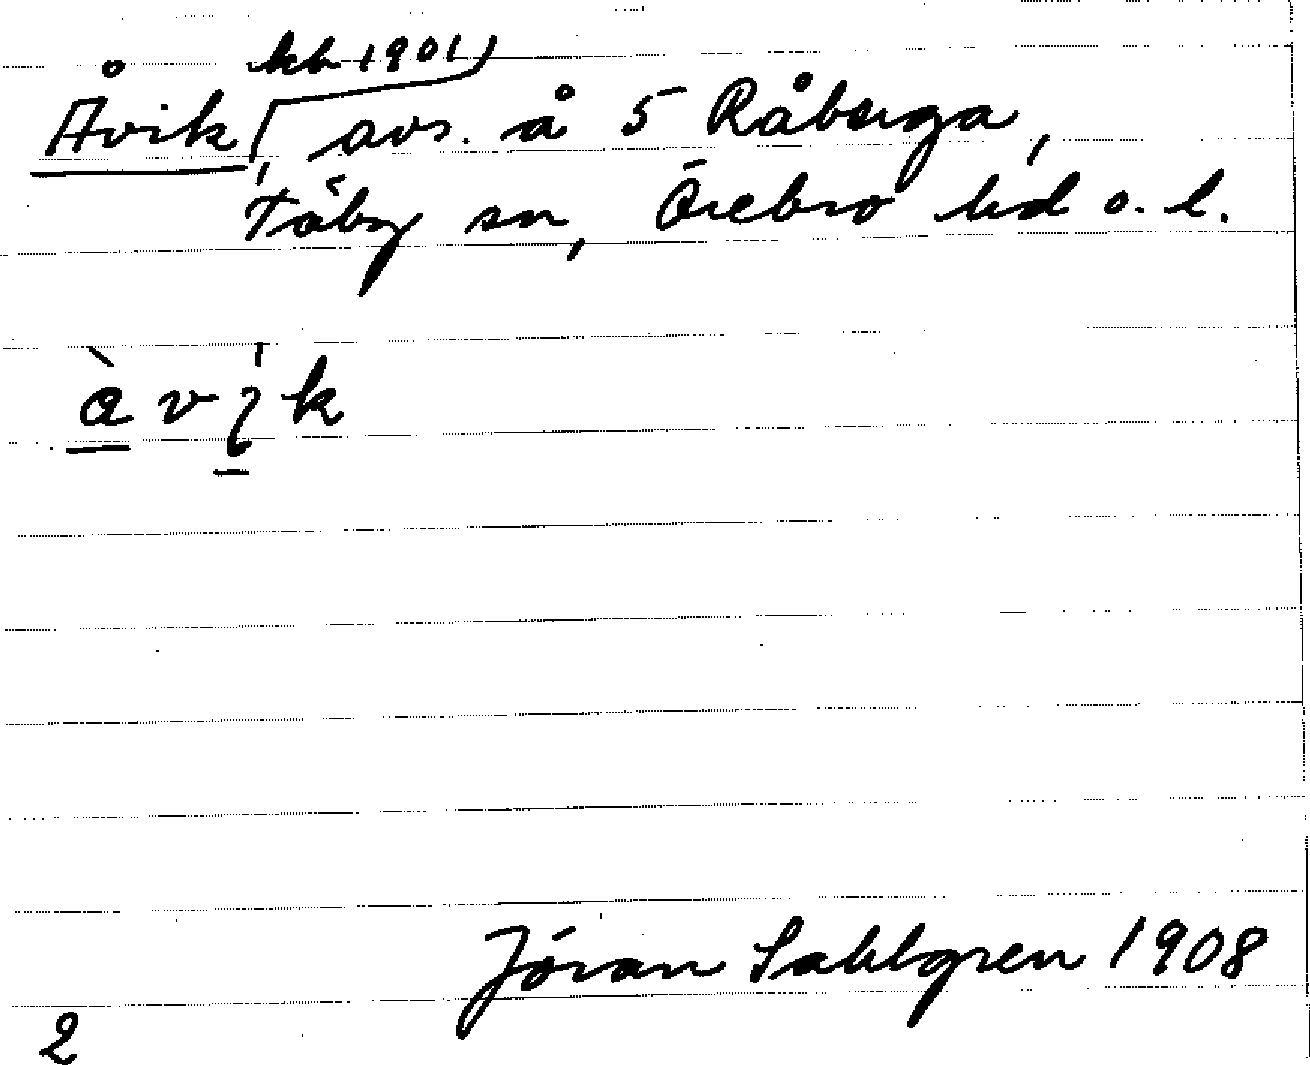 kb 1901
Åvik, avs. å 5 Råberga,
Täby sn, Örebro hd o. l.
àvik
Jöran Sahlgren 1908
2